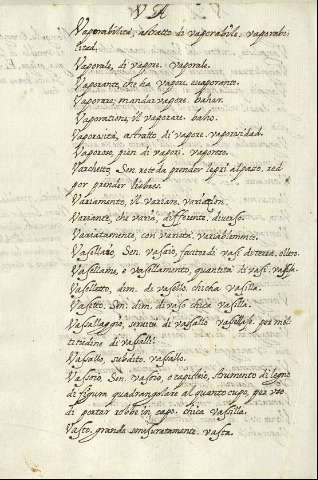 VA
Vaporabilità, astratto di vaporabile, vaporabi-
litad.
Vaporale, di vapore. vaporale.
Vaporante, che ha vapore. evaporante.
Vaporare, mandar vapore. bahar.
Vaporatione, il vaporare. baho.
Vaporosità, astratto di vapore. vaporosidad.
Vaporoso, pien di vapori. vaporoso.
Varchetto, Sen. rete da prender lepri al passo, red
por prender liebres.
Variamento, il variare, variacion.
Variante, che varia, differente, diverso.
Variatamente, con varietà, variablemente.
Vasellaio Sen. vasaio, fattor di vasi di terra, ollero.
Vasellame, e vasellamento, quantità di vasi,
Vaselletto, dim. di vasello, chicha vasilla.
Vasetto. Sen. dim. di vaso chica vasilla.
Vassallaggio, servitù di vassallo per mol-
titudine di vassalli.
Vassallo, subdito. vassallo.
Vassoio Sen. vassoio, strumento di legno
di figura quadrangolare alquanto cupo, per uso
di portar robbe in capo. chica vasilla.
Vasto. grande smisuratamente. vasta.